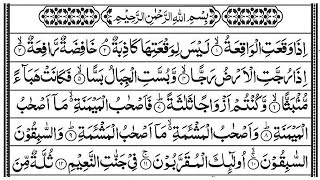 بِسْمِ اللّٰهِ الرَّحْمٰنِ الرَّحِيْمِ
اِذَا وَقَعَتِ الْوَاقِعَةُ ۙ۱ لَيْسَ لِوَقْعَتِهَا كَاذِبَةٌ ۘ۲ خَافِضَةٌ رَّافِعَةٌ ۙ۳
اِذَا رُجَّتِ الْاَرْضُ رَجًّا ۙ۴ وَّبُسَّتِ الْجِبَالُ بَسًّا ۙ۵ فَكَانَتْ هَبَآءً
مُّنْۢبَثًّا ۙ۶ وَّكُنْتُمْ اَزْوَاجًا ثَلٰثَةً ؕ۷ فَاَصْحٰبُ الْمَيْمَنَةِ ۙ مَاۤ اَصْحٰبُ
الْمَيْمَنَةِ ؕ۸ وَاَصْحٰبُ الْمَشْـَٔمَةِ ۙ مَاۤ اَصْحٰبُ الْمَشْـَٔمَةِ ؕ۹ وَالسّٰبِقُوْنَ
السّٰبِقُوْنَ ۚۙ۱۰ اُولٰٓئِكَ الْمُقَرَّبُوْنَ ۚ۱۱ فِيْ جَنّٰتِ النَّعِيْمِ ۱۲ ثُلَّةٌ مِّنَ